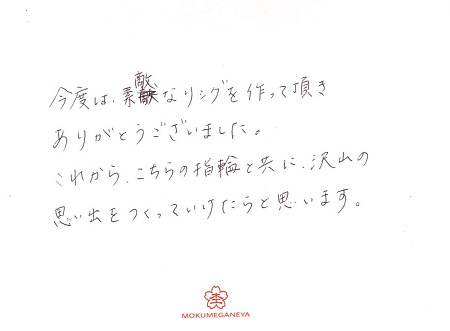 今度は、素敵なリングを作って頂き
ありがとうございました。
これから、こちらの指輪と共に、沢山の
思い出をつくっていけたらと思います。
MOKUMEGANEYA